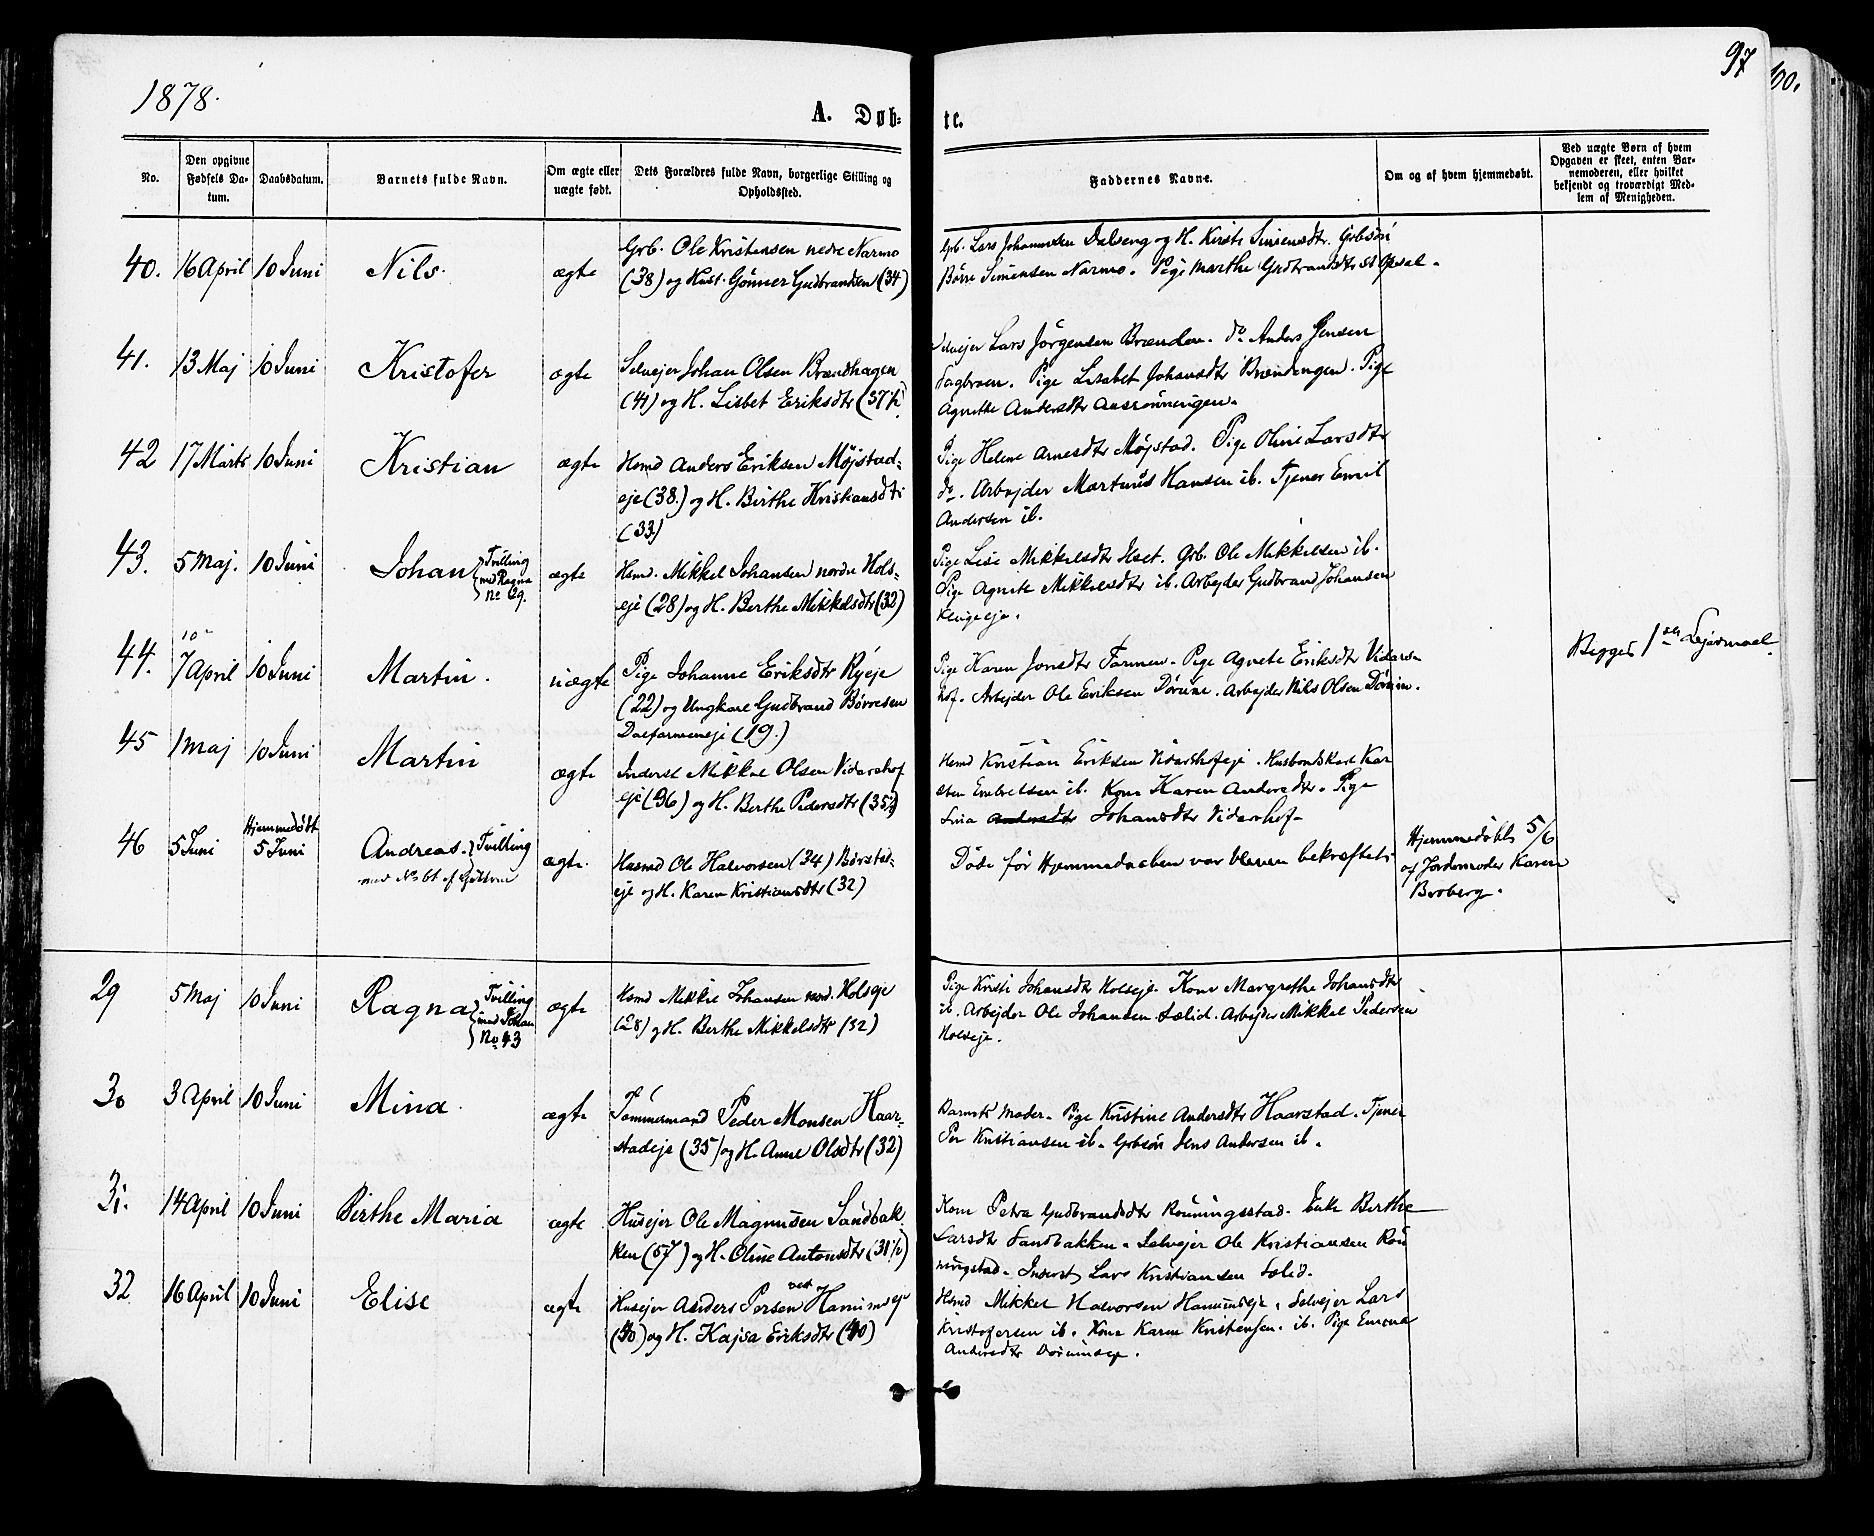 1878.
97
100.
A. Døb-
te.
No.
Den opgivne Fødsels Da-tum.
Daabsdatum.
Barnets fulde Navn.
Om ægte eller uægte født.
Dets Forældres fulde Navn, borgerlige Stilling og Opholdssted.
Faddernes Navne.
Om og af hvem hjemmedøbt.
Ved uægte Børn af hvem Opgaven er skeet, enten Bar-nemoderen, eller hvilket bekjendt og troværdigt Med-lem af Menigheden.
40. 16 April 10 Juni Nils. ægte
Grb. Ole Kristensen nedre Narmo
(38) og Hust. Gönner Gudbrandsen (34)
Grb. Lars Johannesen Dalseng og H. Kirsti Simensdtr. Grbsön
Börre Simensen Narmo. Pige Marthe Gudbrandsdtr Opsal.
41. 13 Maj 10 Juni Kristofer ægte
Selvejer Johan Olsen Brændhagen
(41) og H. Lisbet Eriksdtr (37½)
Selvejer Lars Jörgensen Brænden. do Anders Jensen
Fagbroen. Pige Lisabet Johansdtr Brændengen. Pige
Agnethe Andersdtr
42 17 Marts 10 Juni Kristian ægte
Hsmd Anders Eriksen Möjstad-
eje (38.) og H. Birthe Kristiansdtr
(33)
Pige Helene Arnesdtr Möjstad. Pige Oline Larsdtr
do. Arbejder Martinus Hansen ib. Tjener Emil
Andersen ib.
43. 5 Maj. 10 Juni Johan Tvilling med Ragna No 29. ægte
Hsmd. Mikkel Johansen nordre Hols-
eje (28) og H. Berthe Mikkelsdtr (32)
Pige Lise Mikkelsdtr Ilset. Grb. Ole Mikkelsen ib.
Pige Agnete Mikkelsdtr ib. Arbejder Gudbrand Johansen
44. 7 April 10 Juni Martin. uægte
Pige Johanne Eriksdtr Ryeje
(22) og Ungkarl Gudbrand Börresen
Dælfarmeneje (19.)
Pige Karen Jonsdtr Farmen. Pige Agnete Eriksdtr Vidars-
hof. Arbejder Ole Eriksen Dörum. Arbejder Nils Olsen Dörum.
Begges 1ste Lejermaal.
45 1 Maj 10 Juni Martin ægte
Inderst Mikkel Olsen Vidarshof
eje (36) og H. Berthe Pedersdtr (35½)
Hsmd Kristian Eriksen Vidarshofeje. Husbondskarl Kar
sten Embretsen ib. Kone Karen Andersdtr. Pige
Lina Andersdtr Johansdtr Vidarshof.
46 5 Juni Hjemmedöbt 5 Juni Andreas. Tvilling ægte.
med No 61 af
Husmd Ole Halvorsen (34) Börstad-
eje og H. Karen Kristiansdtr (32)
Döde för Hjemmedaaben var bleven bekræftet.
Hjemmedöbt 5/6
af Jordemoder Karen
Broberg.
29 5 Maj 10 Juni Ragna Tvilling med Johan No 43 ægte
Hsmd Mikkel Johansen nord. Holseje
(28) og H. Berthe Mikkelsdtr (32)
Pige Kristi Johansdtr Holseje. Kone Margrethe Johansdtr
ib. Arbejder Ole Johansen Sælid. Arbejder Mikkel Pedersen
Holseje.
30 3 April 10 Juni Mina. ægte
Tömmermand Peder Monsen Haar-
stadeje (35) og H. Anne Olsdtr (32)
Barnets Moder. Pige Kristine Andersdtr Haarstad. Tjener
Per Kristiansen ib. Grbsön Jens Andersen ib.
31. 14 April 10 Juni Birthe Maria ægte
Husejer Ole Magnusen Sandbak-
ken (57) og H. Oline Antonsdtr (31½)
Kone Petra Gudbrandsdtr Rönningsstad. Enke Berthe
Larsdtr Sandbakken. Selvejer Ole Kristiansen Rön
ningstad. Inderst Lars Kristiansen Sælid.
32 16 April 10 Juni Elise ægte
Husejer Anders Persen vest Hommeje
(40) og H. Kajsa Eriksdtr (40)
Hsmd Mikkel Halvorsen Hommeje. Selvejer Lars
Kristofersen ib. Kone Karen Kristensen. ib. Pige Emma
Andersdtr Dörumseje.